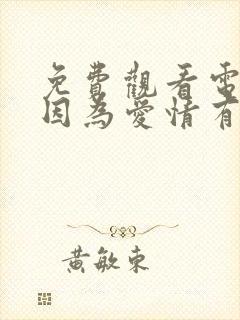 免費觀看電
因為愛情有
黃敏東